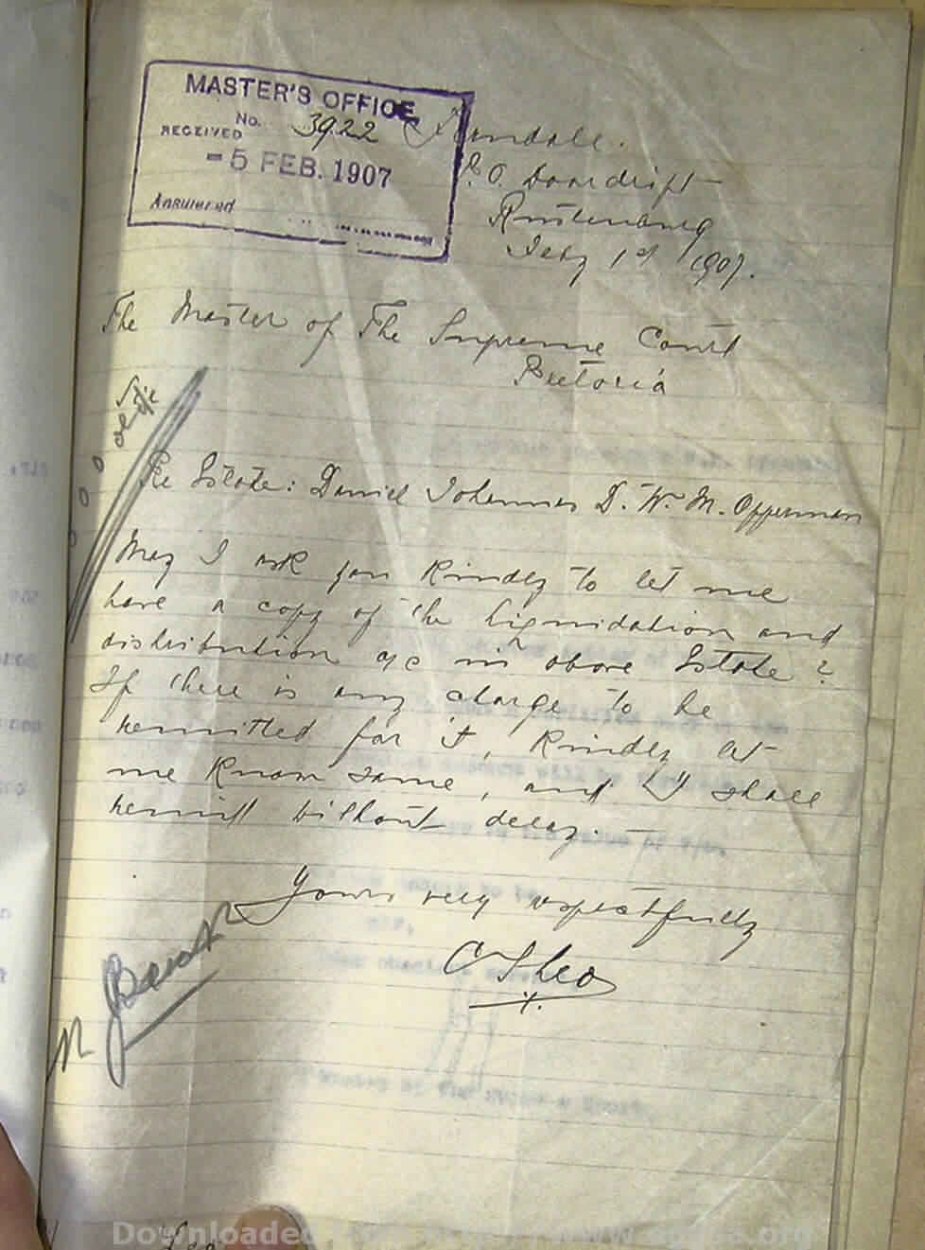 MASTER'S OFFICE
No. 3922
RECEIVED
- 5 FEB. 1907
Answered
P.O. Doordrift
Rustenburg
Feby 1st 1907.
The Master of The Supreme Court
Pretoria
Re Estate: Daniel Johannes D. W. M. Opperman
May I ask you kindly to let me
have a copy of the liquidation and
distribution a/c in above Estate?
If there is any charge to be
remitted for it, kindly let
me know same, and I shall
remit without delay.
Yours very respectfully
Downloaded from